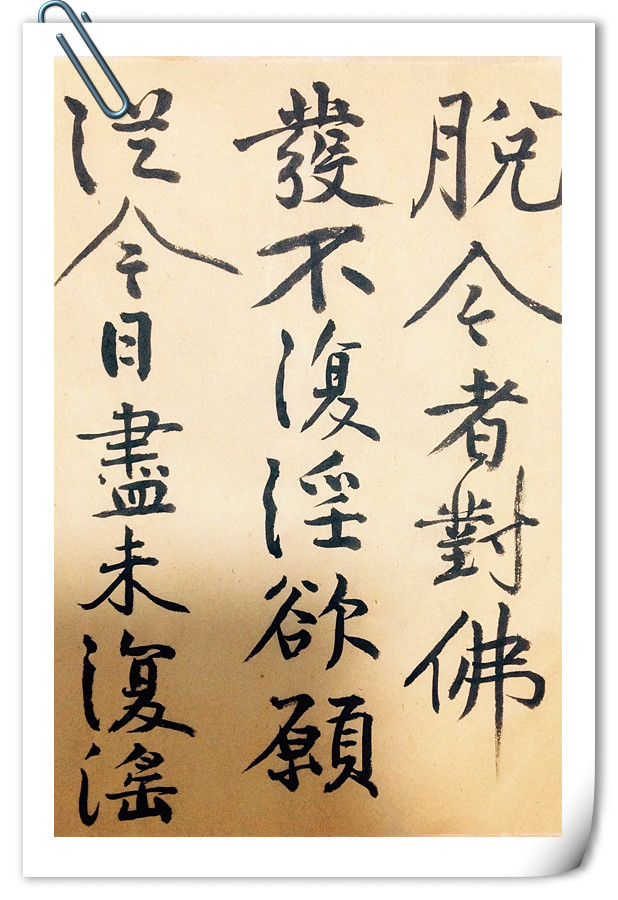 脫今者對佛
發不復淫欲願
從今日盡未復滛